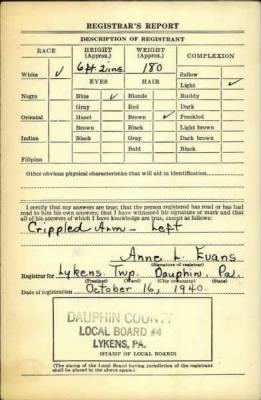 REGISTRAR'S REPORT
DESCRIPTION OF REGISTRANT
RACE HEIGHT (Approx.) WEIGHT (Approx.) COMPLEXION
6ft 2ins. 180 Sallow
White ✓ EYES HAIR Light ✓
Negro Blue ✓ Blonde Ruddy
Gray Red Dark
Oriental Hazel Brown ✓ Freckled
Brown Black Light brown
Indian Black Gray Dark brown
Bald Black
Filipino
Other obvious physical characteristics that will aid in identification
I certify that my answers are true; that the person registered has read or has had
read to him his own answers; that I have witnessed his signature or mark and that
all of his answers of which I have knowledge are true, except as follows:
Crippled Arm - Left
Anne L. Evans
(Signature of registrar)
Registrar for Lykens Twp. Dauphin. Pa.
(Precinct) (Ward) (City or county) (State)
Date of registration October 16, 1940
DAUPHIN COUNTY
LOCAL BOARD #4
LYKENS, PA.
(STAMP OF LOCAL BOARD)
(The stamp of the Local Board having jurisdiction of the registrant
shall be placed in the above space.)